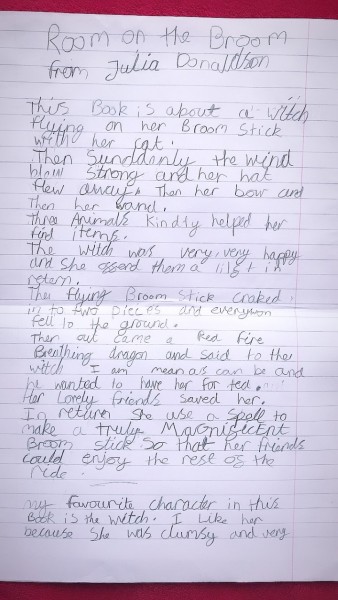 Room on the Broom
from Julia Donaldson
This Book is about a witch
flying on her Broom Stick
with her cat.
Then Sunddenly the wind
blow strong and her hat
flew away. Then her bow and
Then her wand.
Three Animals Kindly helped her
find items.
The witch was very, very happy
and she offend them a lift in
retern.
The flying Broom Stick craked
in to two pieces and everyon
fell to the ground.
Then out came a Red fire
Breathing dragon and said to the
witch I am mean as can be and
he wanted to have her for ted.
Her Lovely friends saved her.
In return She use a spell to
make a truly Magnificent
Broom stick So that her friends
could enjoy the rest of the
ride.
my favourite character in this
Book is the witch. I Like her
because She was clumsy and very